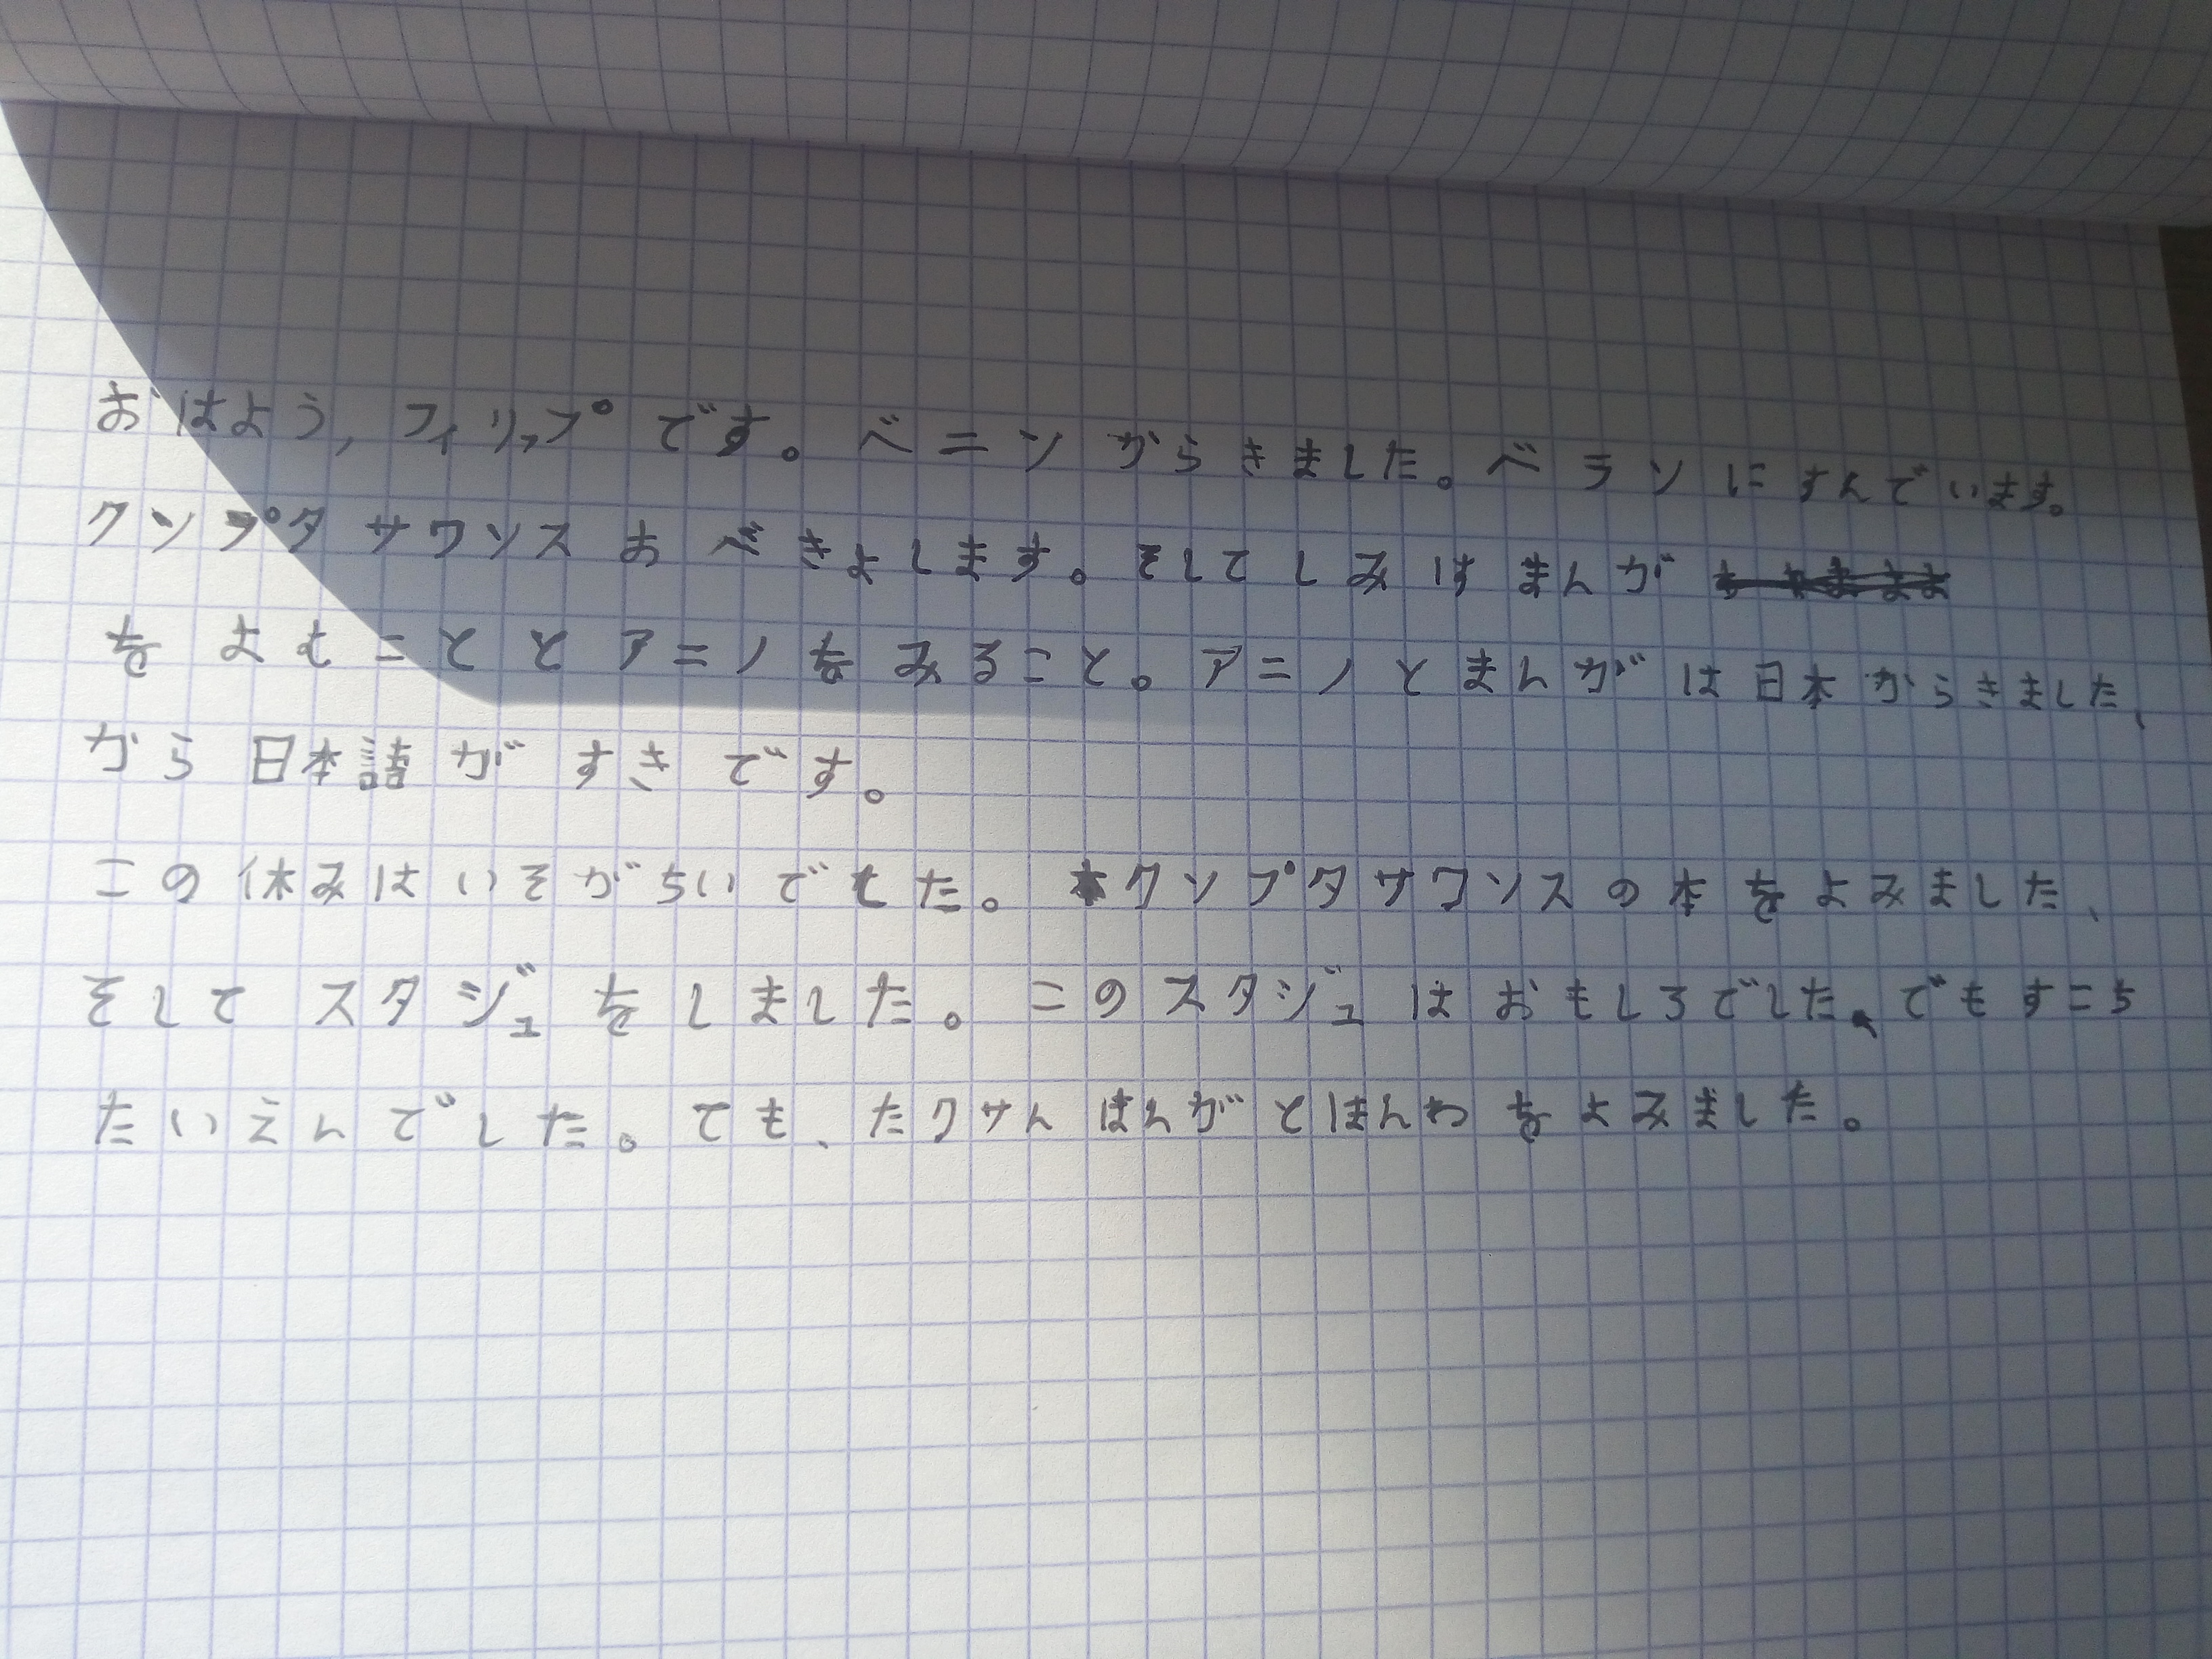 おはよう、フィリップです。ベニンからきました。ベランにすんでいます。
クンプタサウンスおべきょします。そしてしみはまんが
をよむこととアニノをみること。アニノとまんがは日本からきました、
から日本語がすきです。
この休みはいそがちいでした。クンプタサウンスの本をよみました、
そしてスタジェをしました。このスタジェはおもしろでした、でもすこち
たいえんでした。ても、たくさんほんがとほんわをよみました。